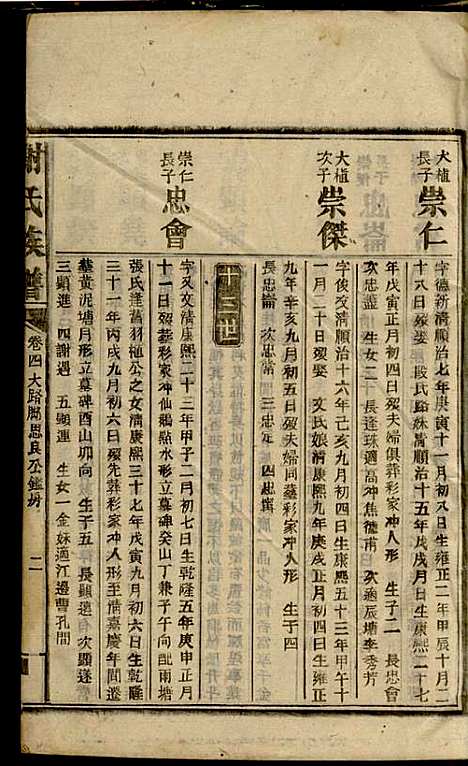 大植長子 崇仁
字德新清順治七年庚寅十一月初八日生雍正二年甲辰十月二
十八日歿娶 殷氏縣姝清順治十五年戊戌月日生康熙二十七
年戊寅正月初四日歿夫婦俱葬彩家冲人形 生子二 長忠會
次忠 生女二 長逢珠適高冲焦德甫 次適辰塘李秀芳
大植次子 崇傑
字俊文清順治十六年己亥九月初四日生康熙五十三年甲午十
一月二十日歿娶 文氏娘清康熙九年庚戌正月初四日生雍正
九年辛亥九月初五日歿夫婦同墓彩家冲人形 生子四
長忠崙 次忠常 三忠定 四忠寅
十三世
崇仁長子 忠會
字又文清康熙二十三年甲子二月初七日生乾隆五年庚申正月
十一日歿葬彩家冲仙鵝點水形立墓碑癸山丁兼子午向配雨塘
張氏達菖羽植公之女清康熙三十七年戊寅九月初六日生乾隆
三十一年丙戌九月初六日歿先葬彩家冲人形至清嘉慶年間遷
墓黃泥塘月形立墓碑酉山卯向 生子五 長顯遠 有 次顯逢
三顯進 四謝遇 五顯運 生女一金姝適江邊曹孔間
謝氏族譜 卷四 大路腳思良公鑑房 二